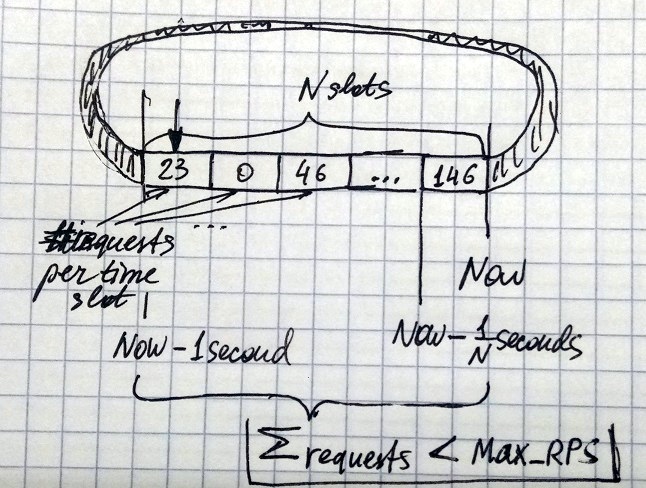 N slots
23 0 46 ... 146
#requests
...
per time
slot
Now
Now - 1 second
Now - 1/N seconds
Σ requests < Max_RPS